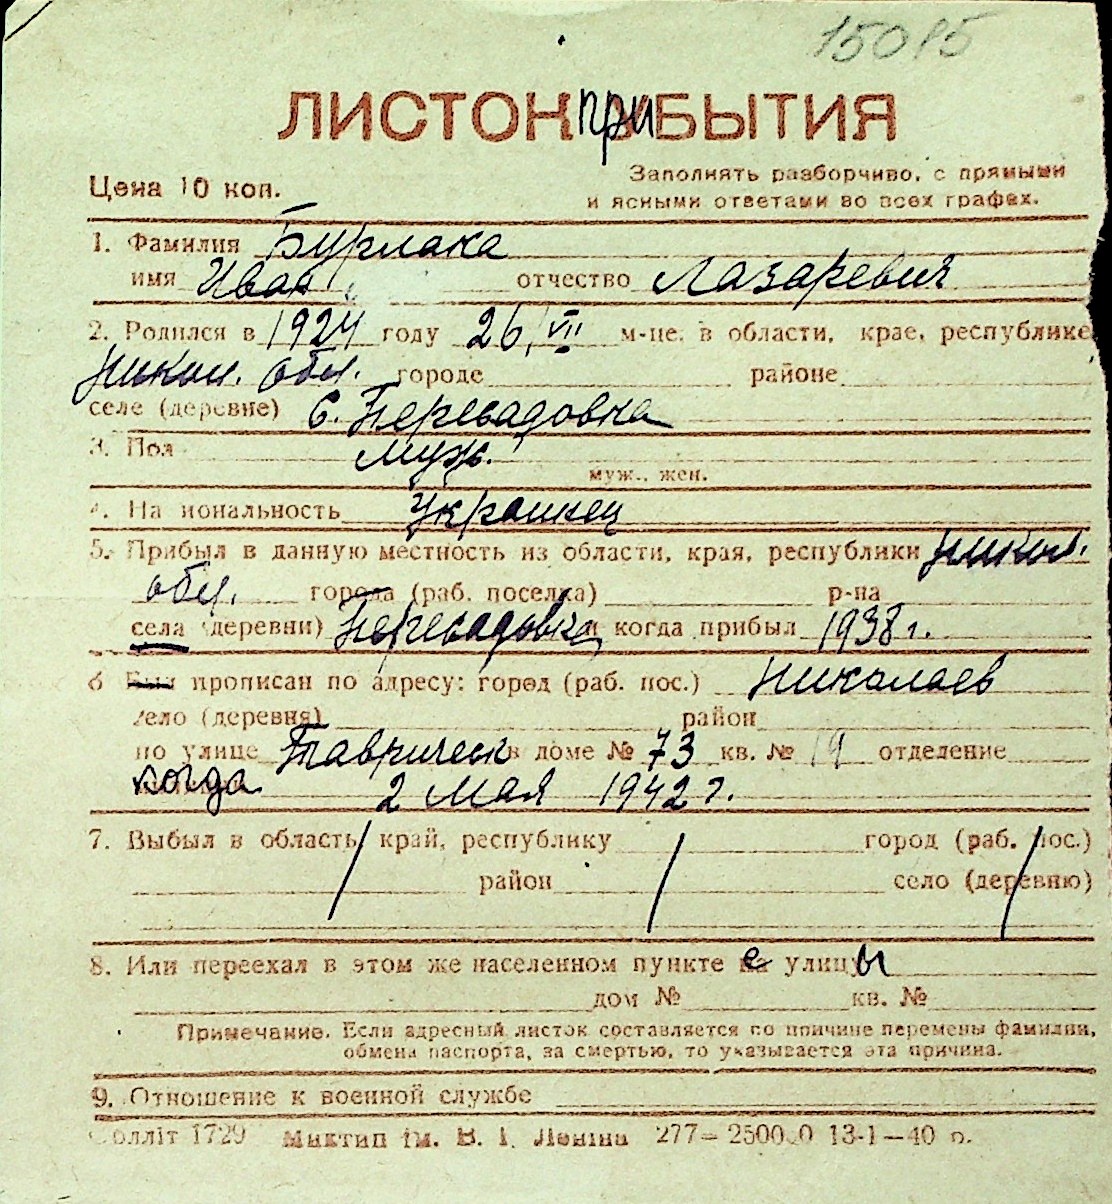 15095
ЛИСТОК прибЫТИЯ
Цена 10 коп.
Заполнять разборчиво, с прямыми
и ясными ответами во всех графах.
1. Фамилия Бурлака
имя Иван отчество Лазаревич
2. Родился в 1924 году 26, VII м-це, в области, крае, республике
Никол. обл. городе районе
селе (деревне) с. Пересадовка
3. Пол муж.
муж., жен.
4. На иональность Украинец
5. Прибыл в данную местность из области, края, республики Никол.
обл. города (раб. поселка) р-на
села (деревни) Пересадовка и когда прибыл 1938 г.
6 Был прописан по адресу: город (раб. пос.) Николаев
село (деревня) район
по улице Таврическ в доме № 73 кв. № 19 отделение
когда 2 мая 1942 г.
7. Выбыл в область, край, республику город (раб. пос.)
район село (деревню)
8. Или переехал в этом же населенном пункте с улицы
дом № кв. №
Примечание. Если адресный листок составляется по причине перемены фамилии,
обмена паспорта, за смертью, то указывается эта причина.
9. Отношение к военной службе
Облліт 1729 Миктип ім. В. І. Леніна 277—25000 13-1—40 р.